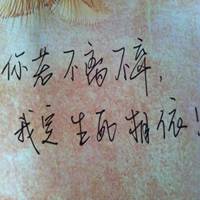 你若不离不弃，
我定生死相依！